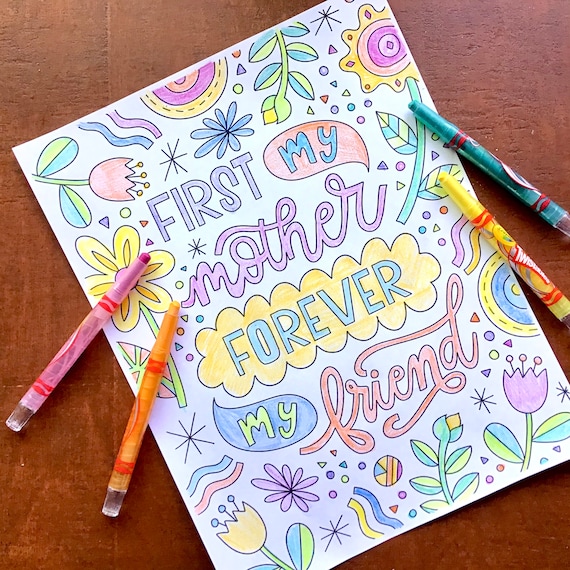 FIRST MY
mother
FOREVER
MY friend